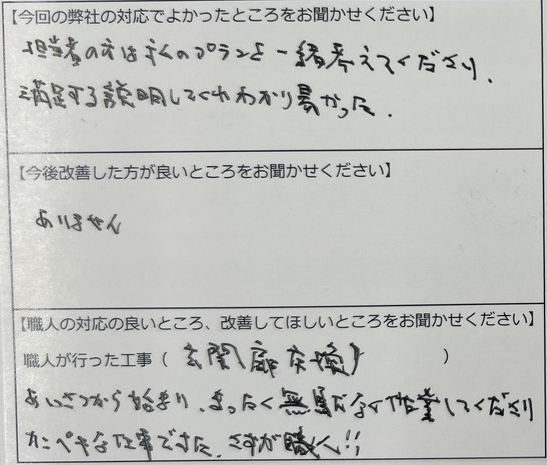 【今回の弊社の対応でよかったところをお聞かせください】
担当者の方は多くのプランを一緒考えてくださり、
満足する説明してくれわかり易かった.
【今後改善した方が良いところをお聞かせください】
ありません
【職人の対応の良いところ、改善してほしいところをお聞かせください】
職人が行った工事（ 玄関 ）
あいさつから始まり、まったく無駄なく作業してくださり
カンペキな仕事でした、さすが職人!!